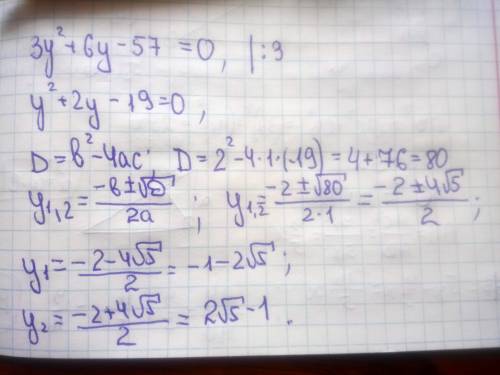 3y²+6y-57 =0, |:3
y²+2y-19=0,
D=b²-4ac; D=2²-4·1·(-19)=4+76=80
y₁,₂=(-b±√D)/2a; y₁,₂=(-2±√80)/2·1=(-2±4√5)/2;
y₁=(-2-4√5)/2=-1-2√5;
y₂=(-2+4√5)/2=2√5-1.